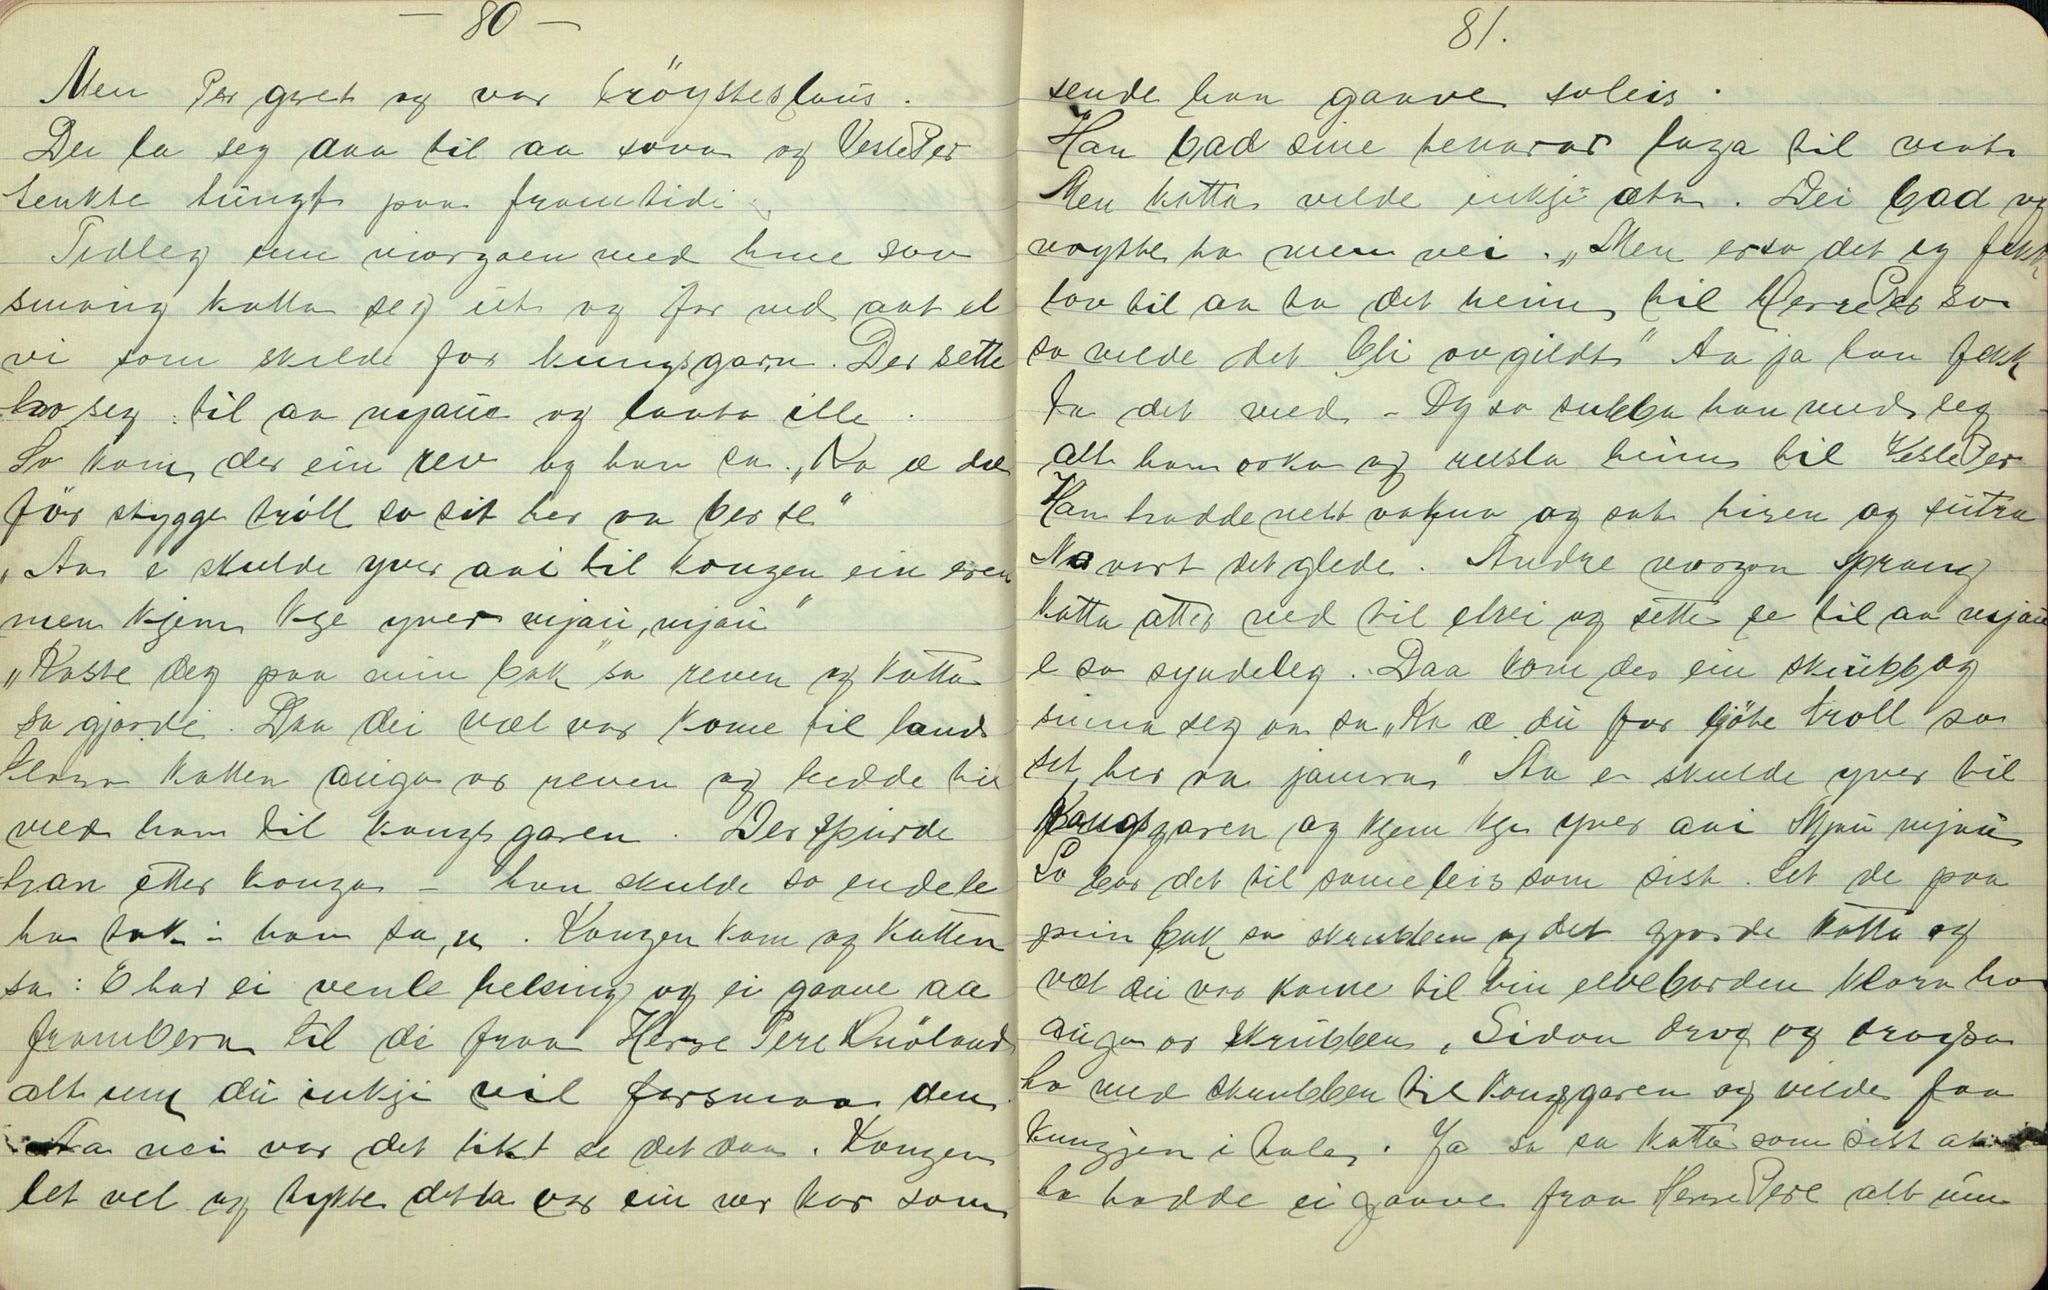 — 80 —
Men Per gret og var tröysteslaus.
Dei la seg daa til aa sova og VeslePer
tenkte tungt paa framtidi
Tidleg um morgoen med hine sov
smaug katta seg ut og for ned aat ei
vi som skilde for kungsgarn. Der sette
ho seg til aa mjaue og laata ille.
So kom der ein rev og han sa. „Ka æ dæ
för stygge tröll so sit her aa ber se"
„Aa e skulde yver ani til kongen ein eren
men kjem kje yver mjau, mjau"
„Kaste deg paa min bak" sa reven og katta
so gjorde. Daa dei væl var kome til lands
klora katten augo or reven og leidde hin
med ham til kongsgaren. Der spurde
han etter konga – han skulde so endele
ha tak i ham sa, n. Kongen kom og katten
sa: "E har ei venle helsing og ei gaave aa
frambera til di fraa Herre Pere Kniöland
alt um du inkji vil forsmaa den.
Aa nei var det likt se det daa. Kongen
let vel og tykte detta var ein ner kar som
81.
sende han gaave soleis.
Han bad sine tenarar laga til mat
Men katta vilde inkji æta. Dei bad og
nøytte ho men nei. „Men erso det eg fekk
lov til aa ta det heim til HerrePer so
so vilde det bli avgildt" Aa ja han fekk
ta det med – Og so subba han med seg
alt han orka og rusla heim til VeslePer
Han hadde nett vakna og sat higen og sutra
No vart det glede. Andre morgon sprang
katta atter ned til elvi og sette se til aa mjau
e so syndeleg. Daa kom der ein skrubb og
snina seg aa sa „Ka æ du for ljöte troll so
sit her aa jamrar" Aa e skulde yver til
Kongsgaren og kjem kje yver ani Mjau mjau
So bar det til sameleis som sist. Set de paa
min bak sa skrubben og det gjorde katta og
væt dei var kome til hin elvebarden klora ho
auga or skrubben, Sidan drog og drog so
ho med skrubben til kongsgaren og vilde faa
kungjen i tale. Ja so sa katta som sist at
ho hadde ei gaave fraa Herre Pere alt um